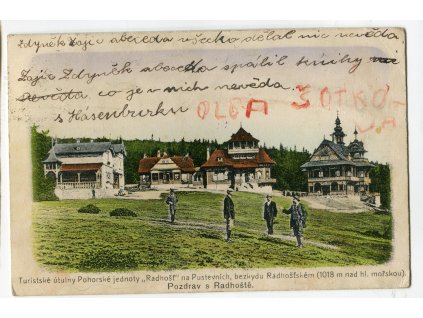 Zdyněk Zajíc abeceda všecko dělal nic nevěda
Zajíc Zdyněk abecedu spálil knihy nic
nevěda co je v nich nevěda.
s Hásenburku
OLGA ZOTKO-
VÁ
Turistské útulny Pohorské jednoty „Radhošť" na Pustevních, bezkydu Radhošťském (1018 m nad hl. mořskou).
Pozdrav s Radhoště.